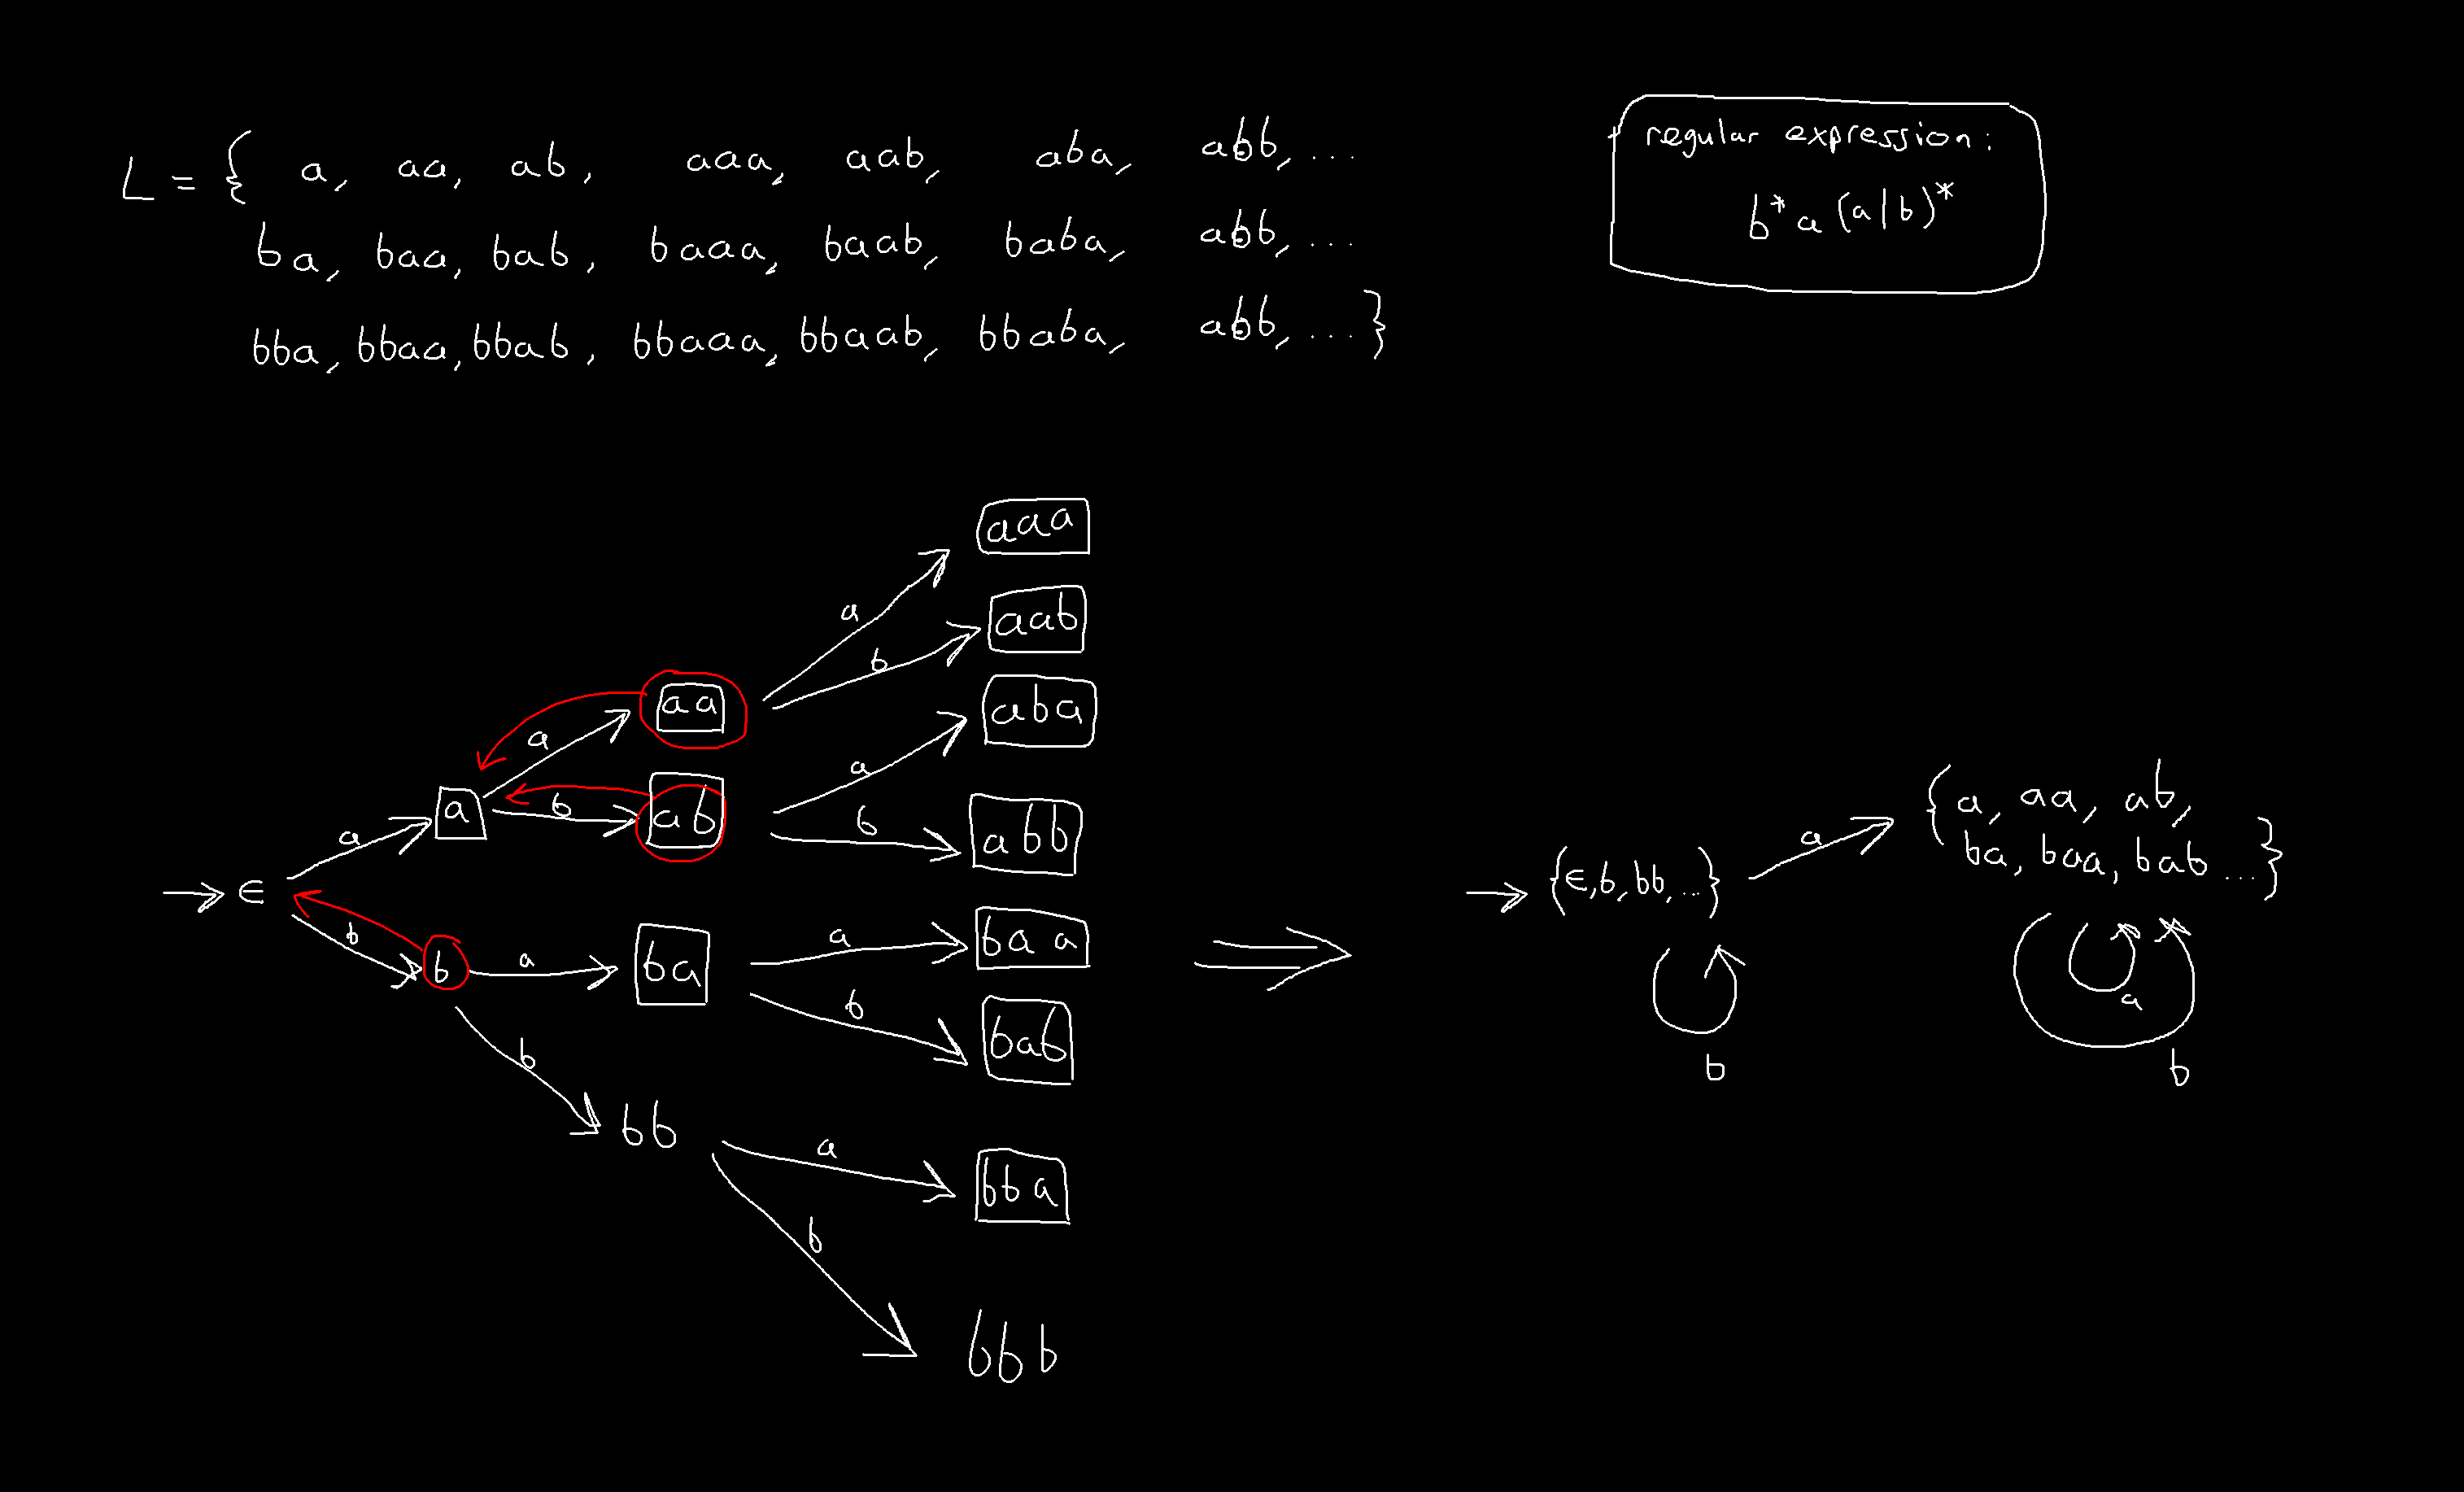 L = { a, aa, ab, aaa, aab, aba, abb, ...
ba, baa, bab, baaa, baab, baba, abb, ...
bba, bbaa, bbab, bbaaa, bbaab, bbaba, abb, ... }
regular expression:
b* a (a|b)*
aaa
a
aab
b
aa
aba
a
a
a
b
ab
b
abb
a
→ ∈
b
b
a
ba
a
baa
b
bab
b
bb
a
bba
b
bbb
⇒
→ {∈, b, bb, ...}
a
{ a, aa, ab,
ba, baa, bab ... }
b
a
b